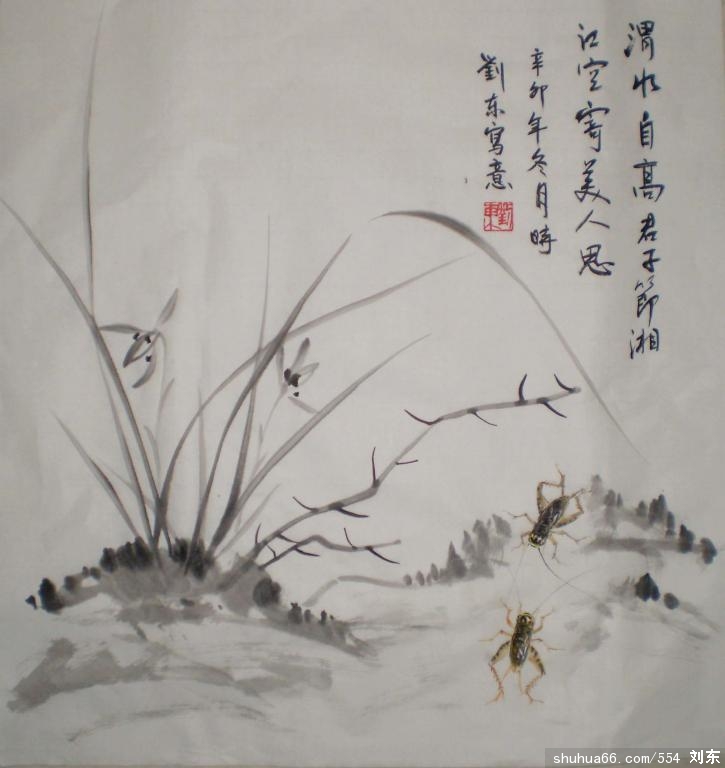 渭水自高君子節湘
江空寄美人思
辛卯年冬月時
劉东寫意
劉東
shuhua66.com/554 刘东